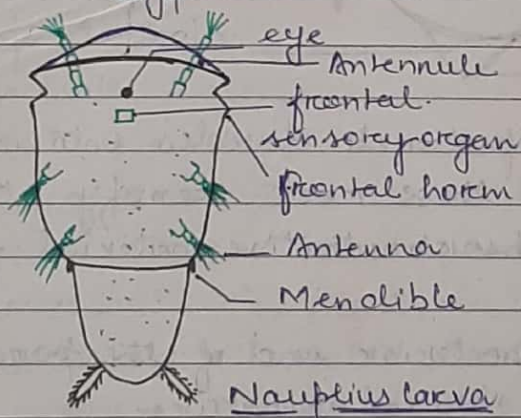 eye
Antennule
frontal
sensory organ
frontal horn
Antenna
Mendible
Nauplius larva